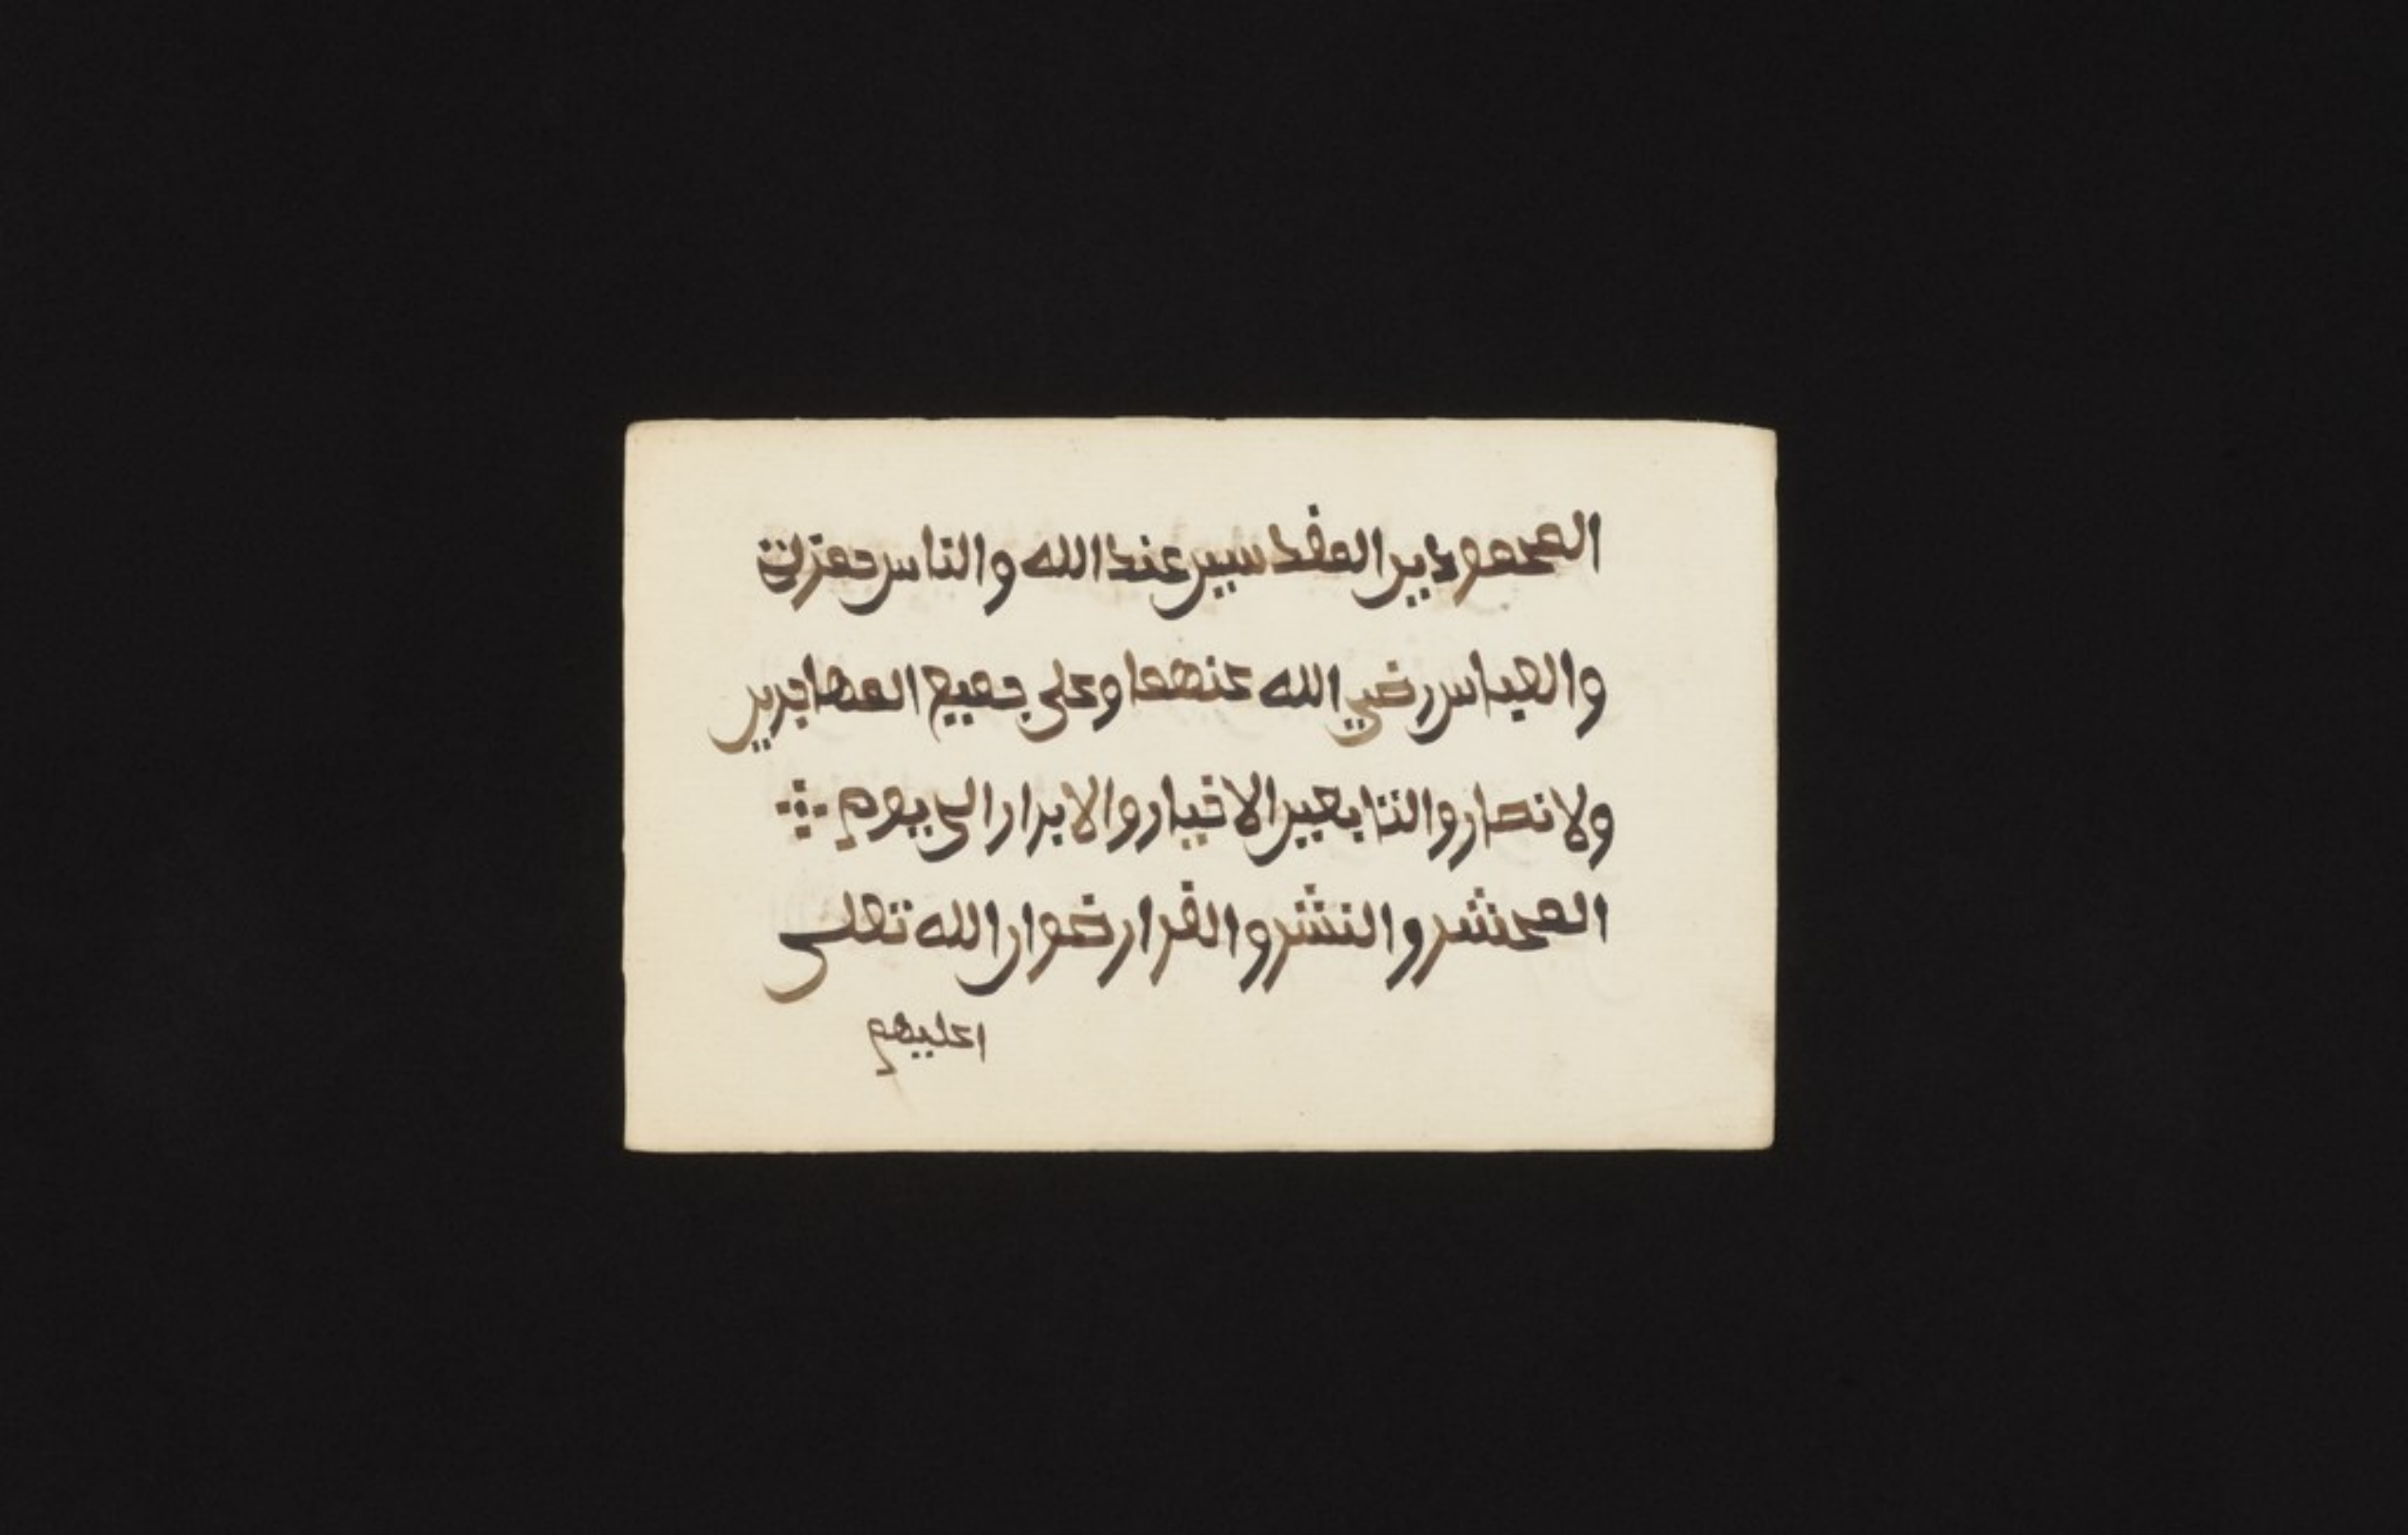 المحمودين المقدسين عند الله والناس حمزت
والعباس رضي الله عنهما وعلى جميع المهاجرين
ولانصار والتابعين الاخيار والابرار الى يوم
المحشر والنشر والقرار ضوان الله تعلى
اعليهم